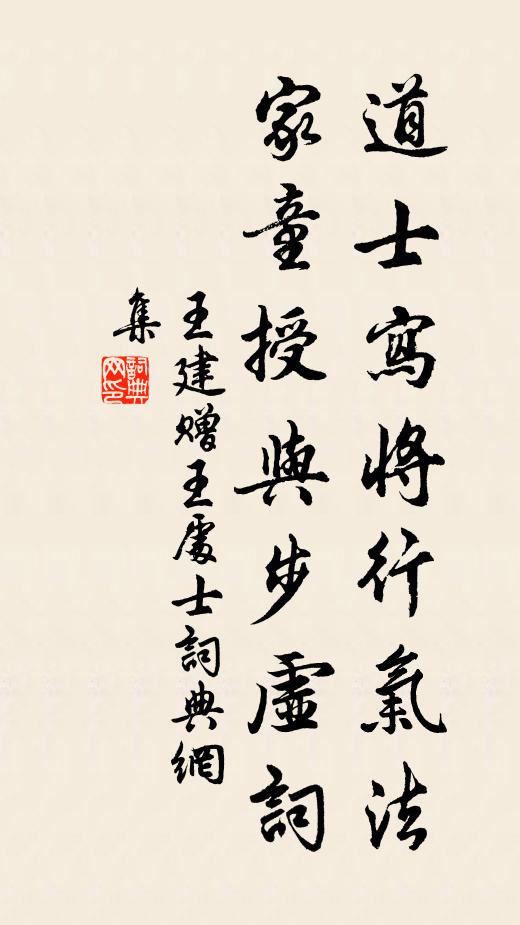 道士寫將行氣法
家童授與步虛詞
王建贈王處士詞典網
集
詞典网印